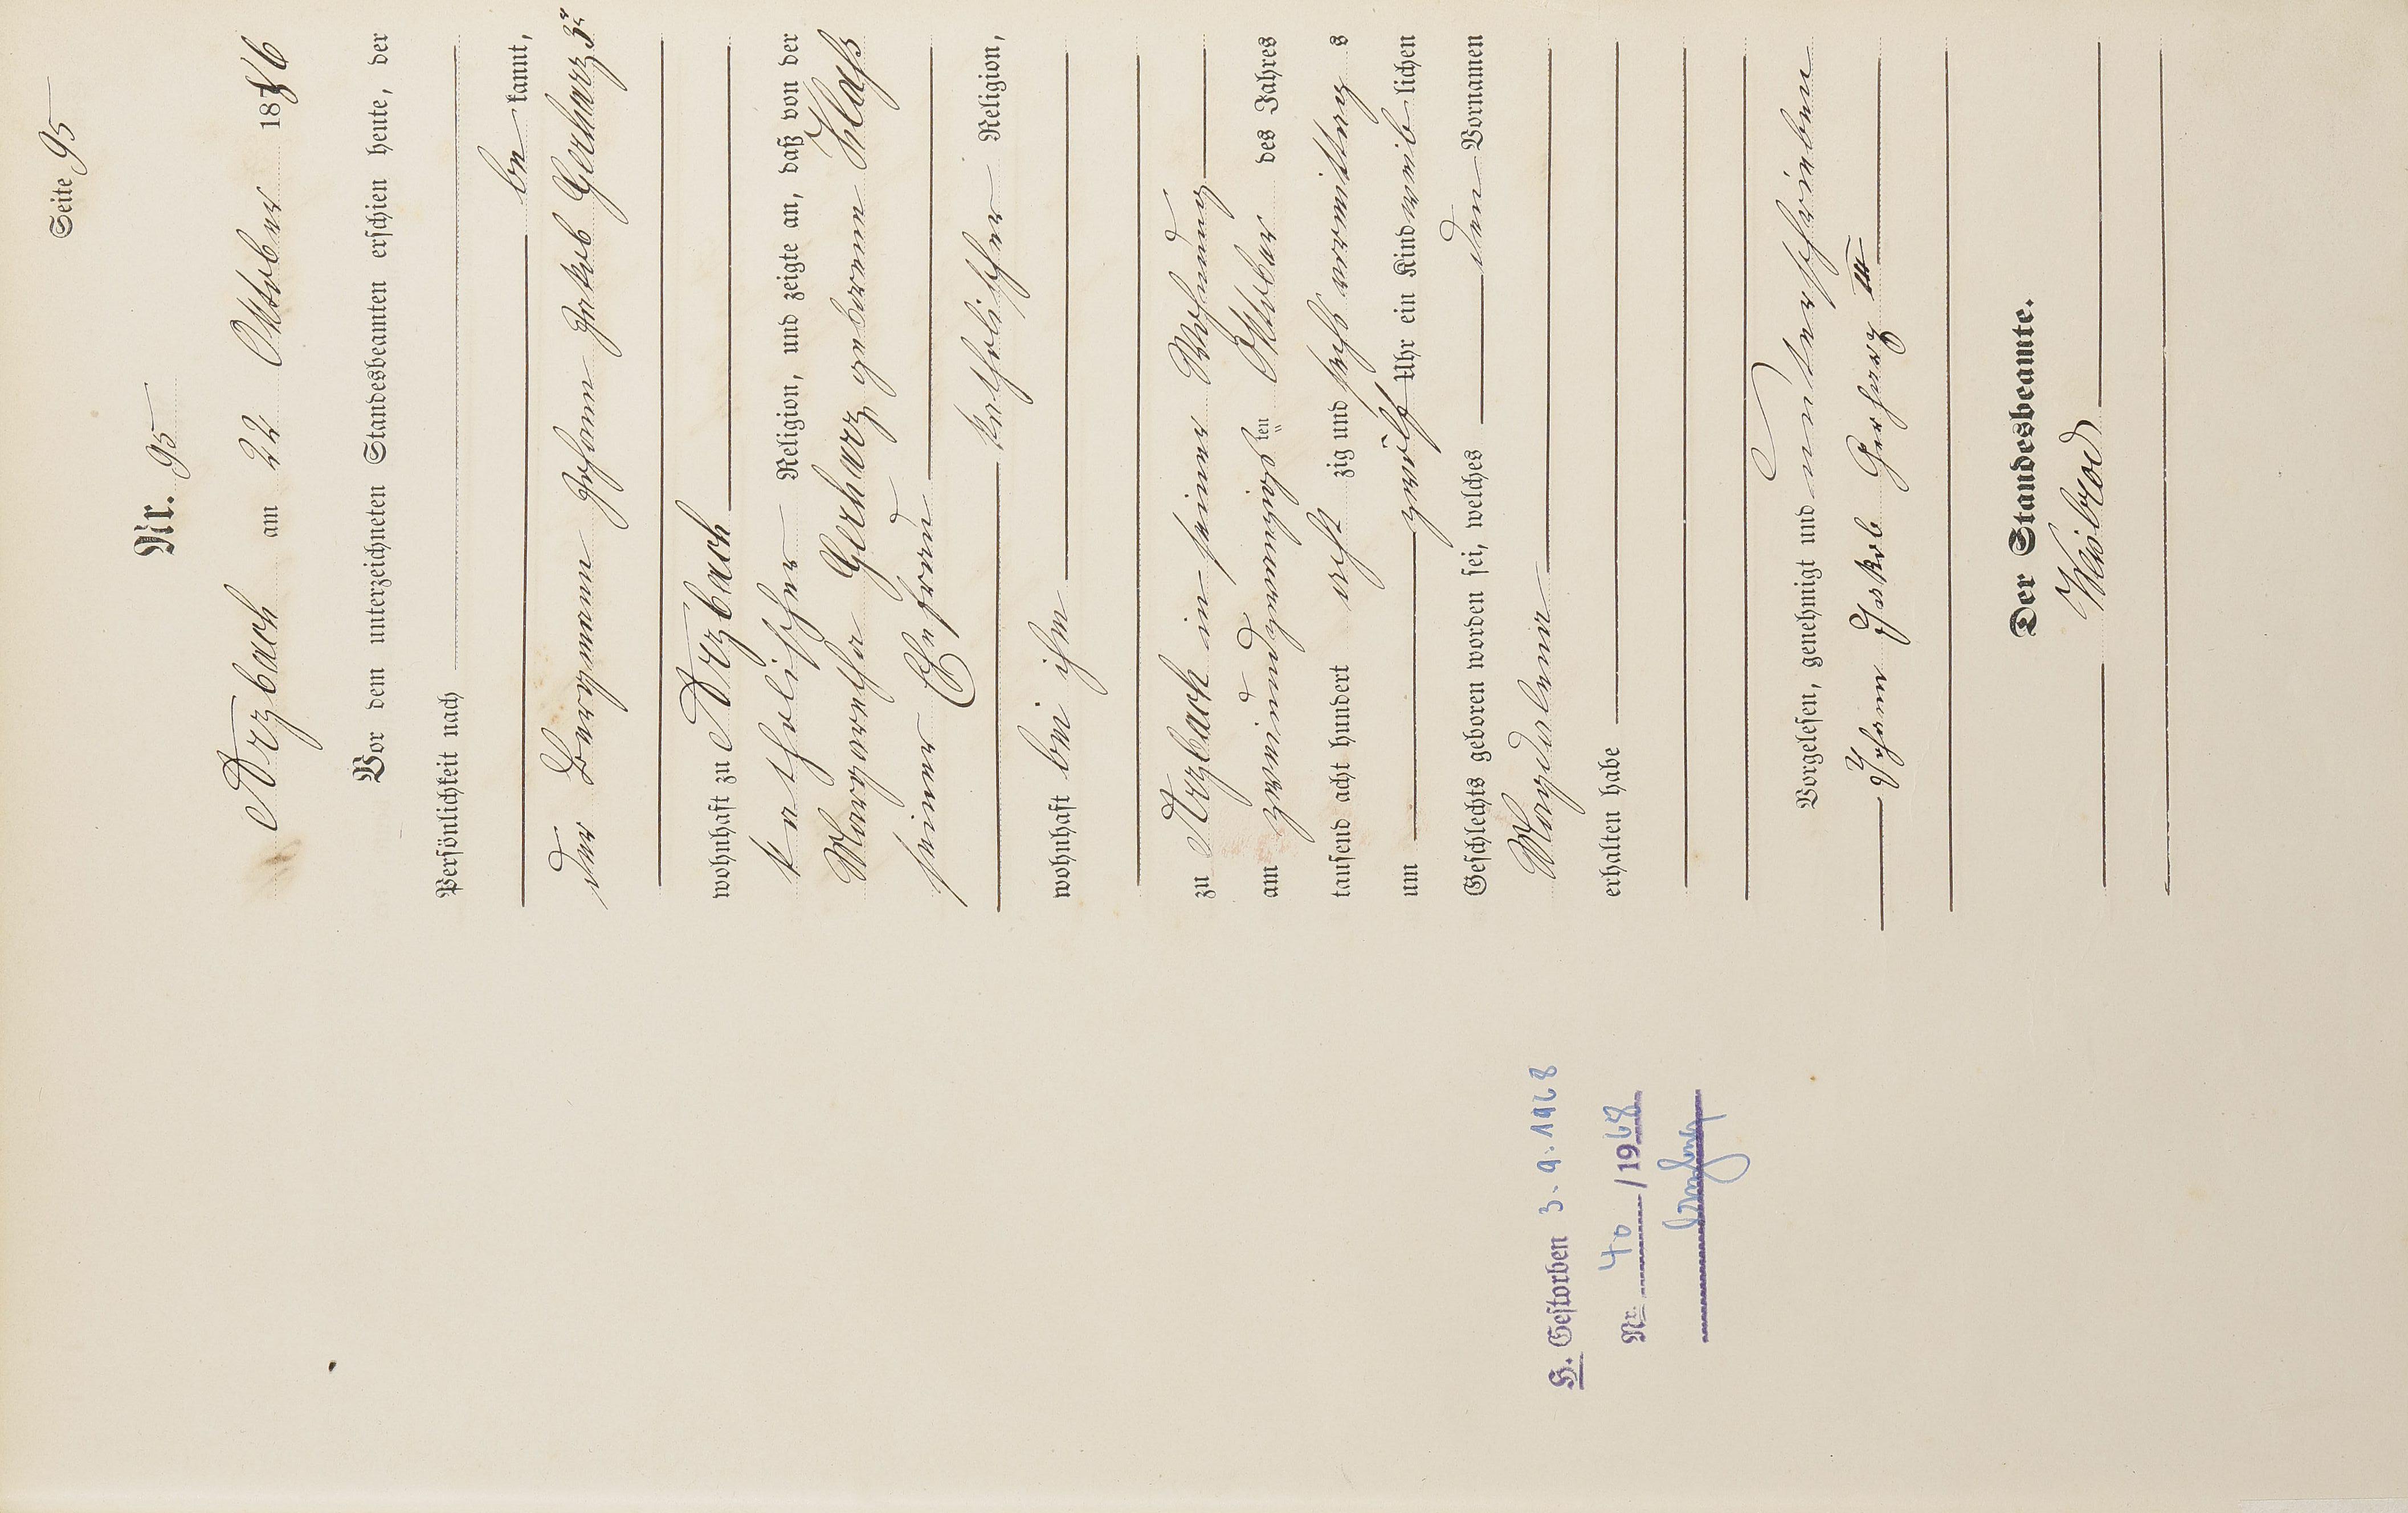 Seite 95
Nr. 95
Arzbach am 22 Oktober 1886
Vor dem unterzeichneten Standesbeamten erschien heute, der
Persönlichkeit nach
be kannt,
der Bergmann Johann Jakob Gerharz 3r
wohnhaft zu Arzbach
katholischer Religion, und zeigte an, daß von der
Margaretha Gerharz geborenen Klaß
seiner Ehefrau
katholischer Religion,
wohnhaft bei ihm
zu Arzbach in seiner Wohnung
am zweiundzwanzigsten Oktober des Jahres
tausend acht hundert acht zig und sechs vormittag s
um zwölf Uhr ein Kind weib lichen
Geschlechts geboren worden sei, welches den Vornamen
Magdalena
erhalten habe
Vorgelesen, genehmigt und unterschrieben
Johann Jakob Gerharz III
Der Standesbeamte.
H. Gestorben 3.9.1968
Nr. 40 / 1968